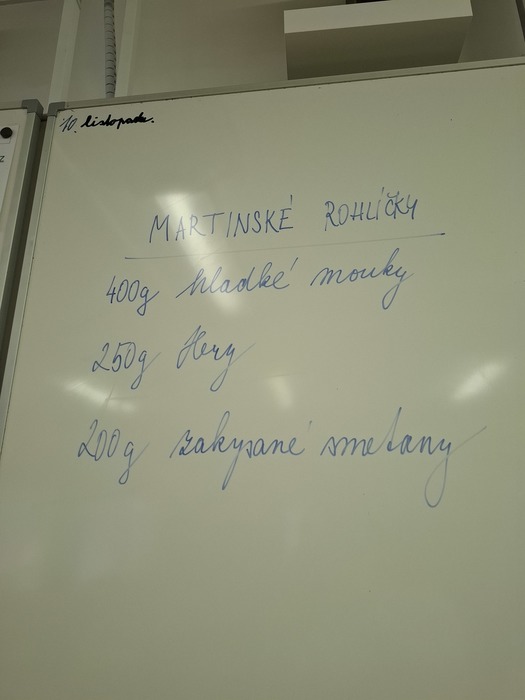 10. listopadu.
MARTINSKÉ ROHLÍČKY
400g hladké mouky
250g Hery
200g zakysané smetany
z